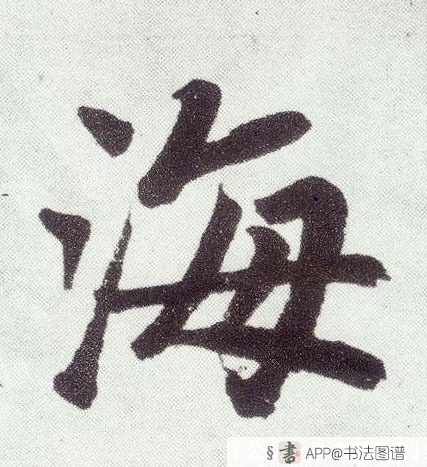 海
§書 APP@书法图谱